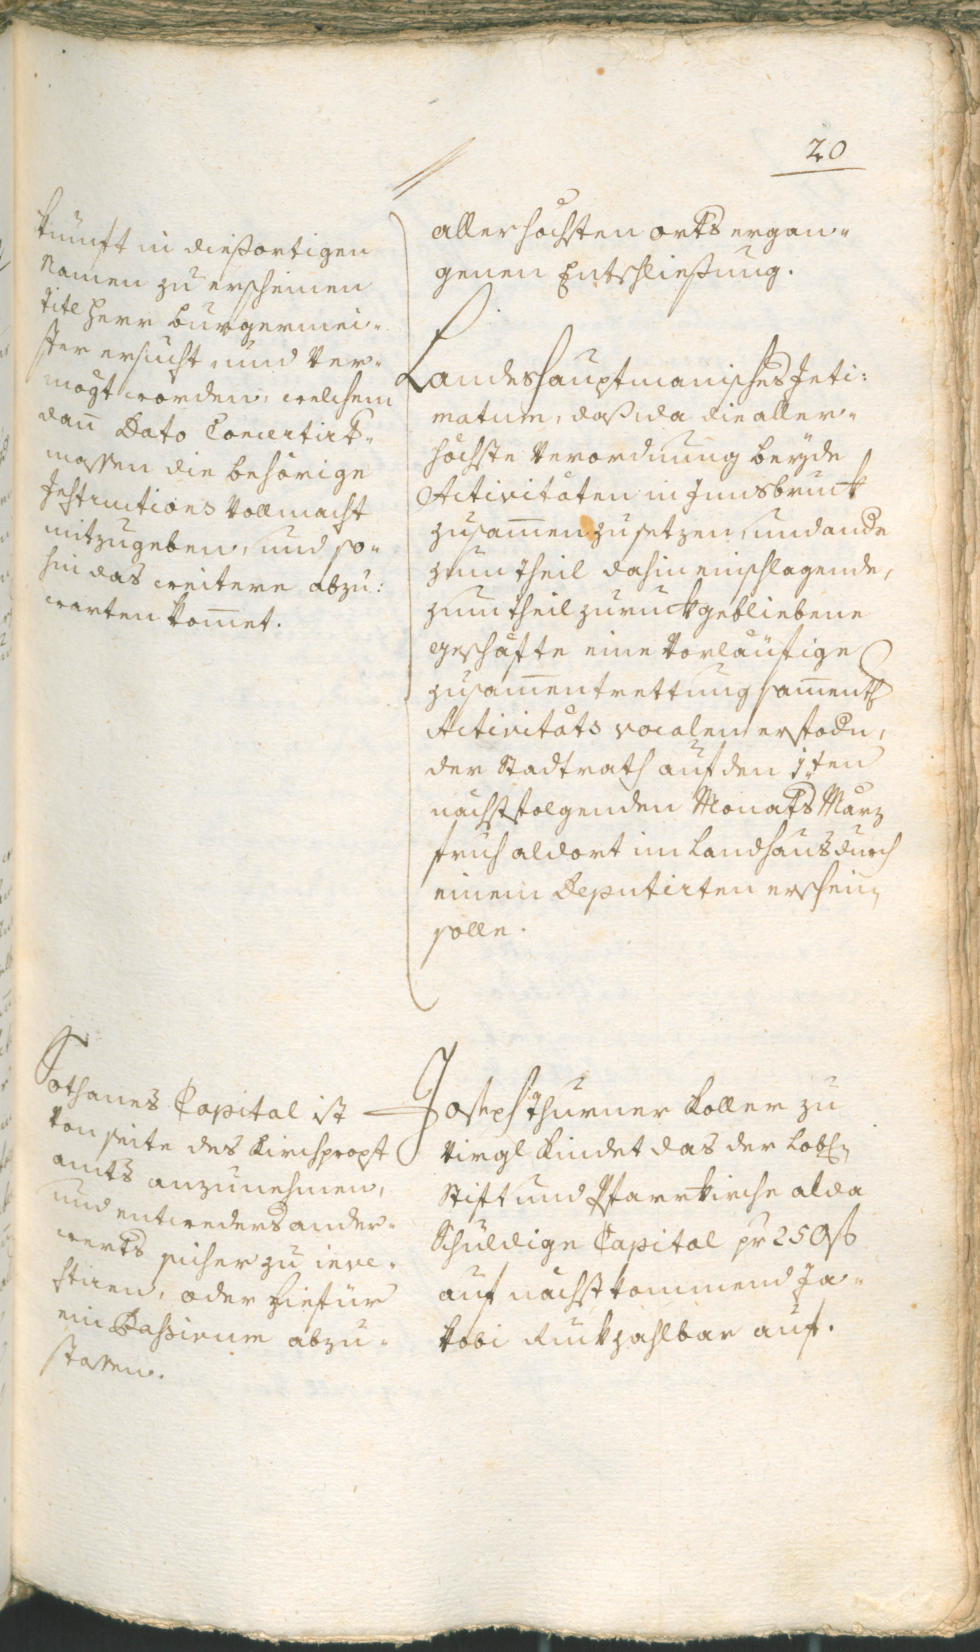 20
kunft in dießortigen
Namen zu erscheinen
Titl Herr Burgermei-
ster ersucht und ver-
mögt worden, welchem
dan̄ Dato Concertirt-
massen die behörige
Instructions Vollmacht
mitzugeben, und so-
hin das weitere abzu:
warten kom̄et.
allerhöchsten orts ergan-
genen Entschließung.
Landeshauptmanisches Inti:
matum, daß da die aller-
höchste Verordnung beyde
Activitäten in Innsbruck
zusam̄en zu setzen, und ande
zum theil dahin einschlagende,
zum theil zuruckgebliebene
geschäfte eine vorläufige
zusam̄entrettung sam̄entl
Activitäts vocalen
der Stadtrath auf den 1ten
nächstfolgenden Monats März
fruh aldort im Landhaus durch
einem Deputirten erschein
solle.
Sothanes Capital ist
von seite des Kirchpropst
amts anzunehmen,
und entweders ander-
werts sicher zu inve-
stiren, oder hiefür
ein Passivum abzu-
stossen.
Joseph Thurner Koller zu
Virgl kindet das der Lobl
Stift und Pfarrkirche alda
Schuldige Capital pr 250 f
auf nächstkommend Ja-
kobi Ruckzahlbar auf.